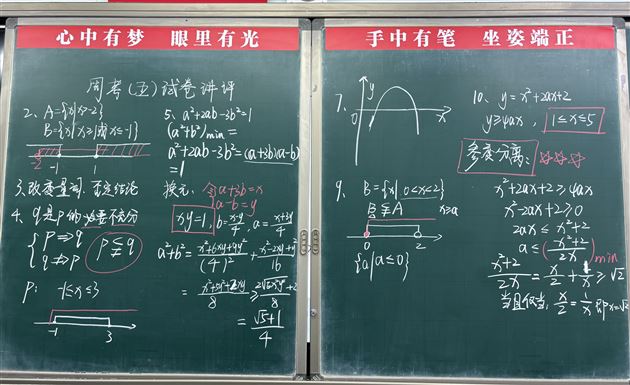 心中有梦 眼里有光
手中有笔 坐姿端正
周考(五)试卷讲评
2、A={x|x>-2}
B={x|x≥1或x≤-1}
-2 -1 1
3、改变量词,否定结论
4、q是p的必要不充分
{p⇒q
q⇏p
p⫋q
p: -1≤x≤3
-1 3
5、a²+2ab-3b²=1
(a²+b²)min=
a²+2ab-3b²=(a+3b)(a-b)
=1
换元:令a+3b=x
a-b=y
xy=1, b=x-y/4, a=x+3y/4
a²+b²=x²+6xy+9y²/(4)²+x²-2xy+y²/16
=x²+5y²+2xy/8≥2√5x²y²+2/8
=√5+1/4
7、
y
0 x
9、B={x|0<x<2}
B⫋A x>a
0 2
{a|a≤0}
10、y=x²+2ax+2
y≥4ax, 1≤x≤5
参变分离:☆☆☆
x²+2ax+2≥4ax
x²-2ax+2≥0
2ax≤x²+2
a≤(x²+2/2x)min
x²+2/2x=x/2+1/x≥√2
当且仅当,x/2=1/x即x=√2